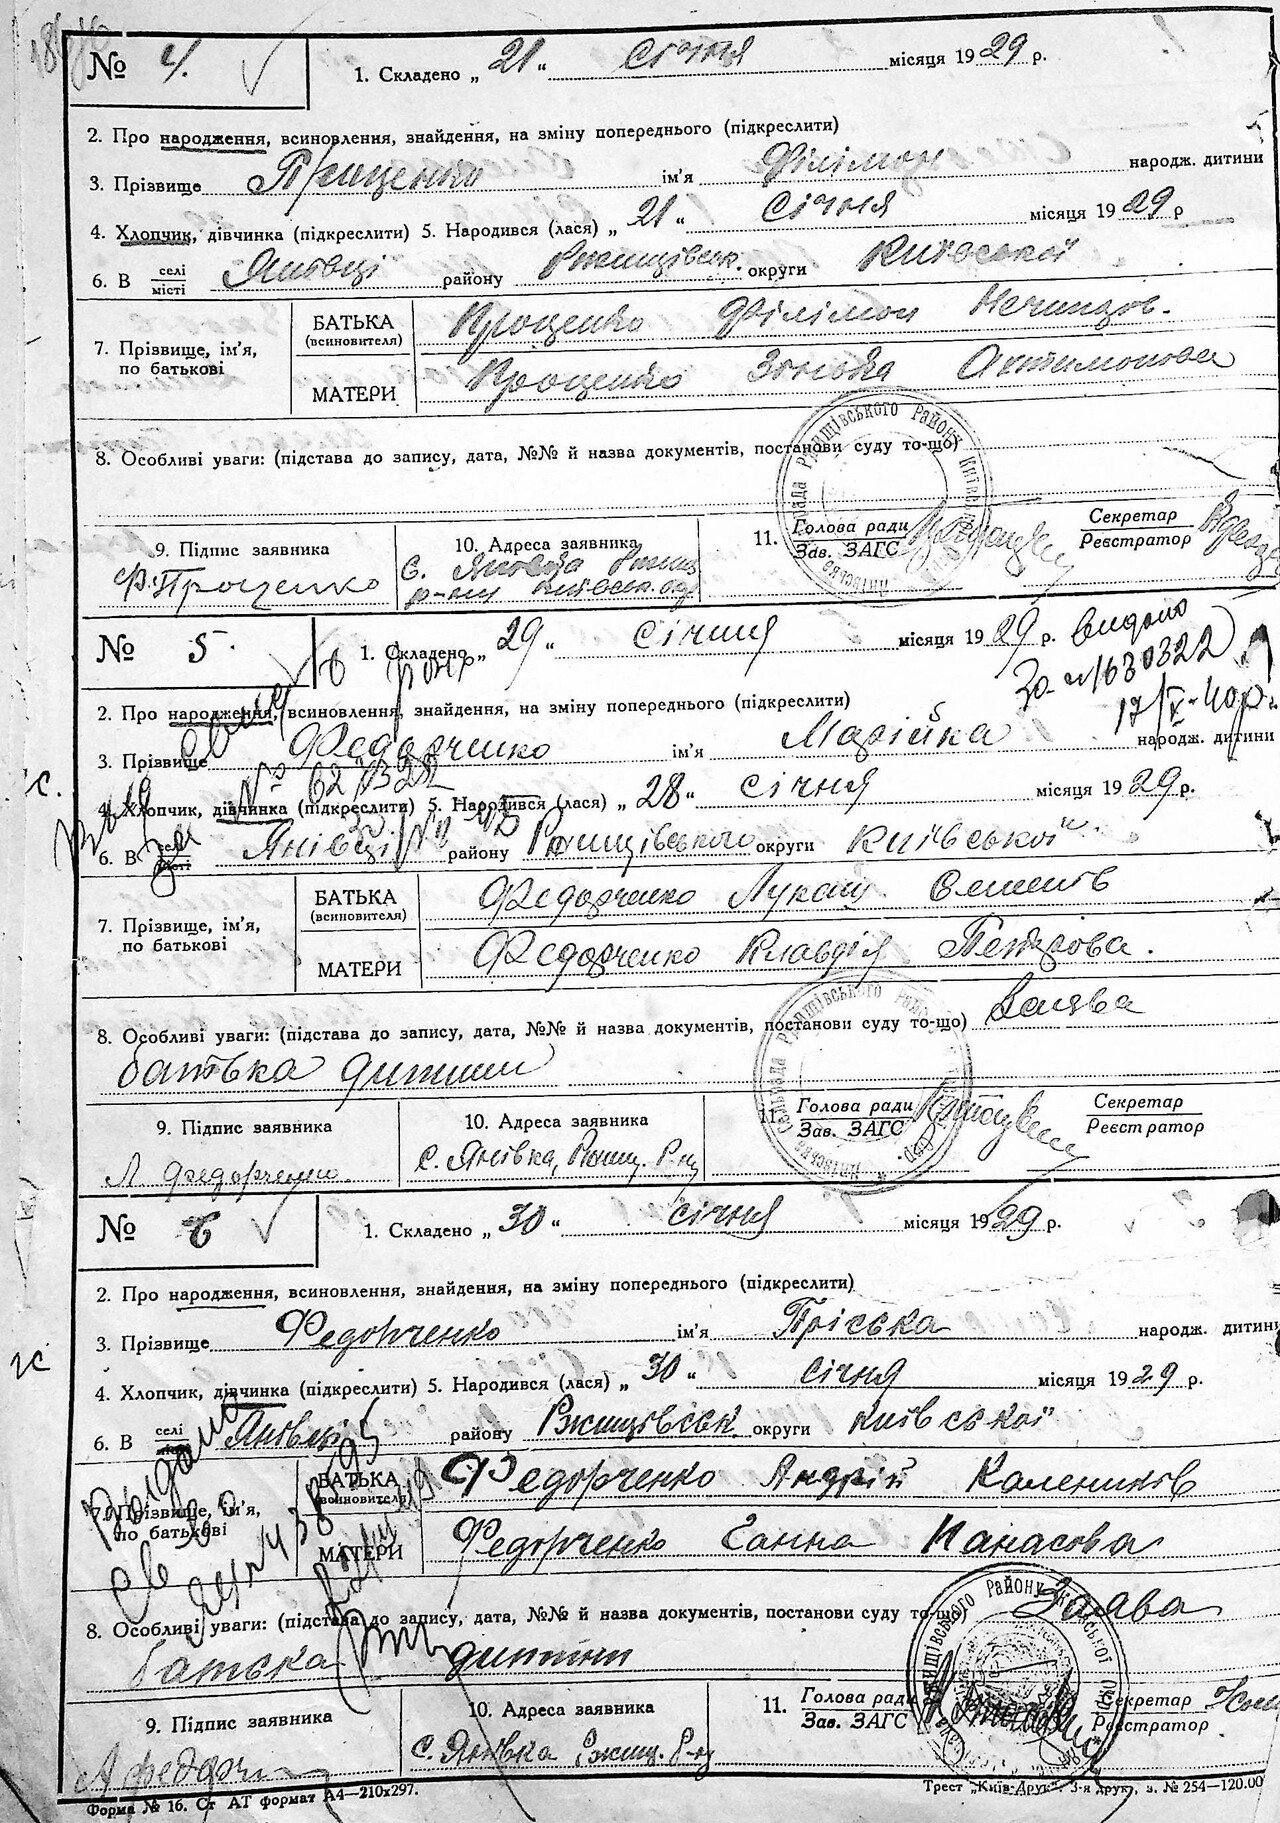 № 4.
1. Складено „ 21 “ Січня місяця 1929 р.
2. Про народження, всиновлення, знайдення, на зміну попереднього (підкреслити)
3. Прізвище Проценко ім’я Філімон народж. дитини
4. Хлопчик, дівчинка (підкреслити) 5. Народився (лася) „ 21 “ Січня місяця 1929 р
6. В селі місті Янівці району Ржищівськ. округи Київської
7. Прізвище, ім’я, по батькові
БАТЬКА (всиновителя) Проценко Філімон
МАТЕРИ Проценко Зінька
8. Особливі уваги: (підстава до запису, дата, №№ й назва документів, постанови суду то-що)
9. Підпис заявника
10. Адреса заявника
11. Голова ради Зав. ЗАГС
Секретар Реєстратор
Ф. Проценко
с. Янівка Ржищ р-ну Київськ. окр
№ 5.
1. Складено „ 29 “ січня місяця 1929 р. видано
630322
2. Про народження, всиновлення, знайдення, на зміну попереднього (підкреслити)
3. Прізвище Федорченко ім’я Марійка народж. дитини
4. Хлопчик, дівчинка (підкреслити) 5. Народився (лася) „ 28 “ січня місяця 1929 р.
6. В селі місті Янівці району Ржищівського округи Київської
7. Прізвище, ім’я, по батькові
БАТЬКА (всиновителя) Федорченко Лукаш Семенів
МАТЕРИ Федорченко Клавдія Петрова.
8. Особливі уваги: (підстава до запису, дата, №№ й назва документів, постанови суду то-що) Заява
батька дитини
9. Підпис заявника
10. Адреса заявника
11. Голова ради Зав. ЗАГС
Секретар Реєстратор
Л Федорченко
с. Янівка, Ржищ. Р-ну
№ 6
1. Складено „ 30 “ січня місяця 1929 р.
2. Про народження, всиновлення, знайдення, на зміну попереднього (підкреслити)
3. Прізвище Федорченко ім’я Пріська народж. дитини
4. Хлопчик, дівчинка (підкреслити) 5. Народився (лася) „ 30 “ січня місяця 1929 р.
6. В селі місті Янівкі району Ржищівськ округи київської
7. Прізвище, ім’я, по батькові
БАТЬКА (всиновителя) Федорченко Андрій Калеників
МАТЕРИ Федорченко Ганна Панасова
8. Особливі уваги: (підстава до запису, дата, №№ й назва документів, постанови суду то-що) Заява
батька дитини
9. Підпис заявника
10. Адреса заявника
11. Голова ради Зав. ЗАГС
Секретар Реєстратор
с. Янівка Ржищ. Р-ну
Форма № 16. Ст АТ формат А4—210х297.
Трест „Київ-Друк“. 3-я друк., з. № 254—120.00